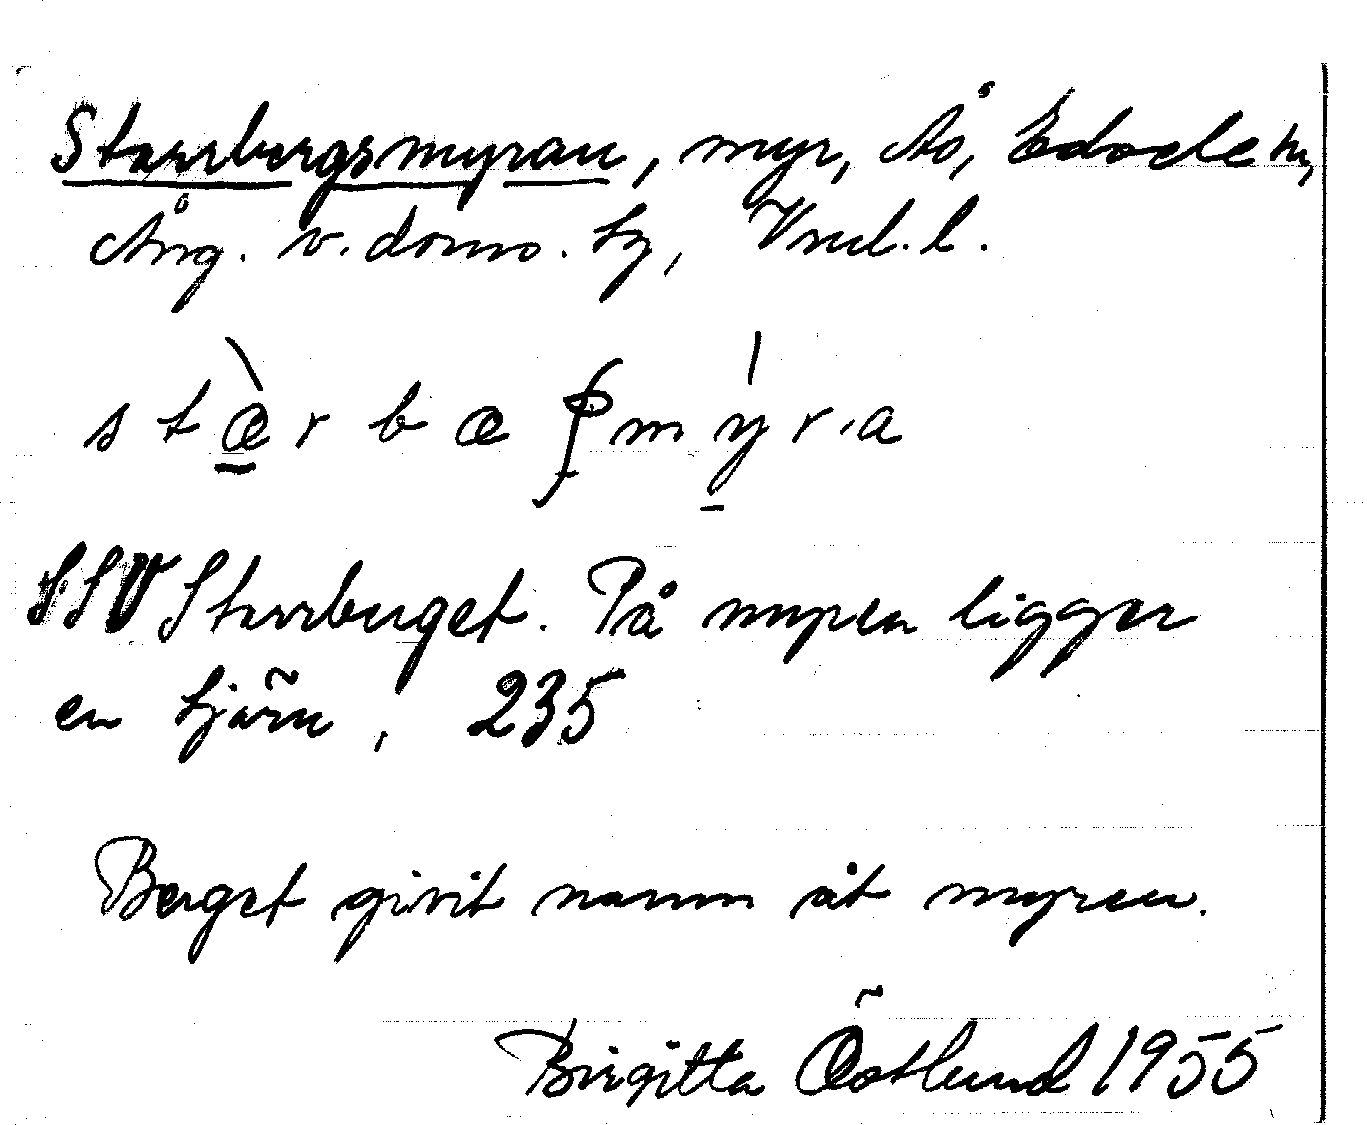 Starrbergsmyran, myr, Ås, Edsele sn,
Ång. v. doms. hg, Vnl. l.
stærbæʂmýra
SSV Starrberget. På myren ligger
en tjärn, 235
Berget givit namn åt myren.
Birgitta Östlund 1955